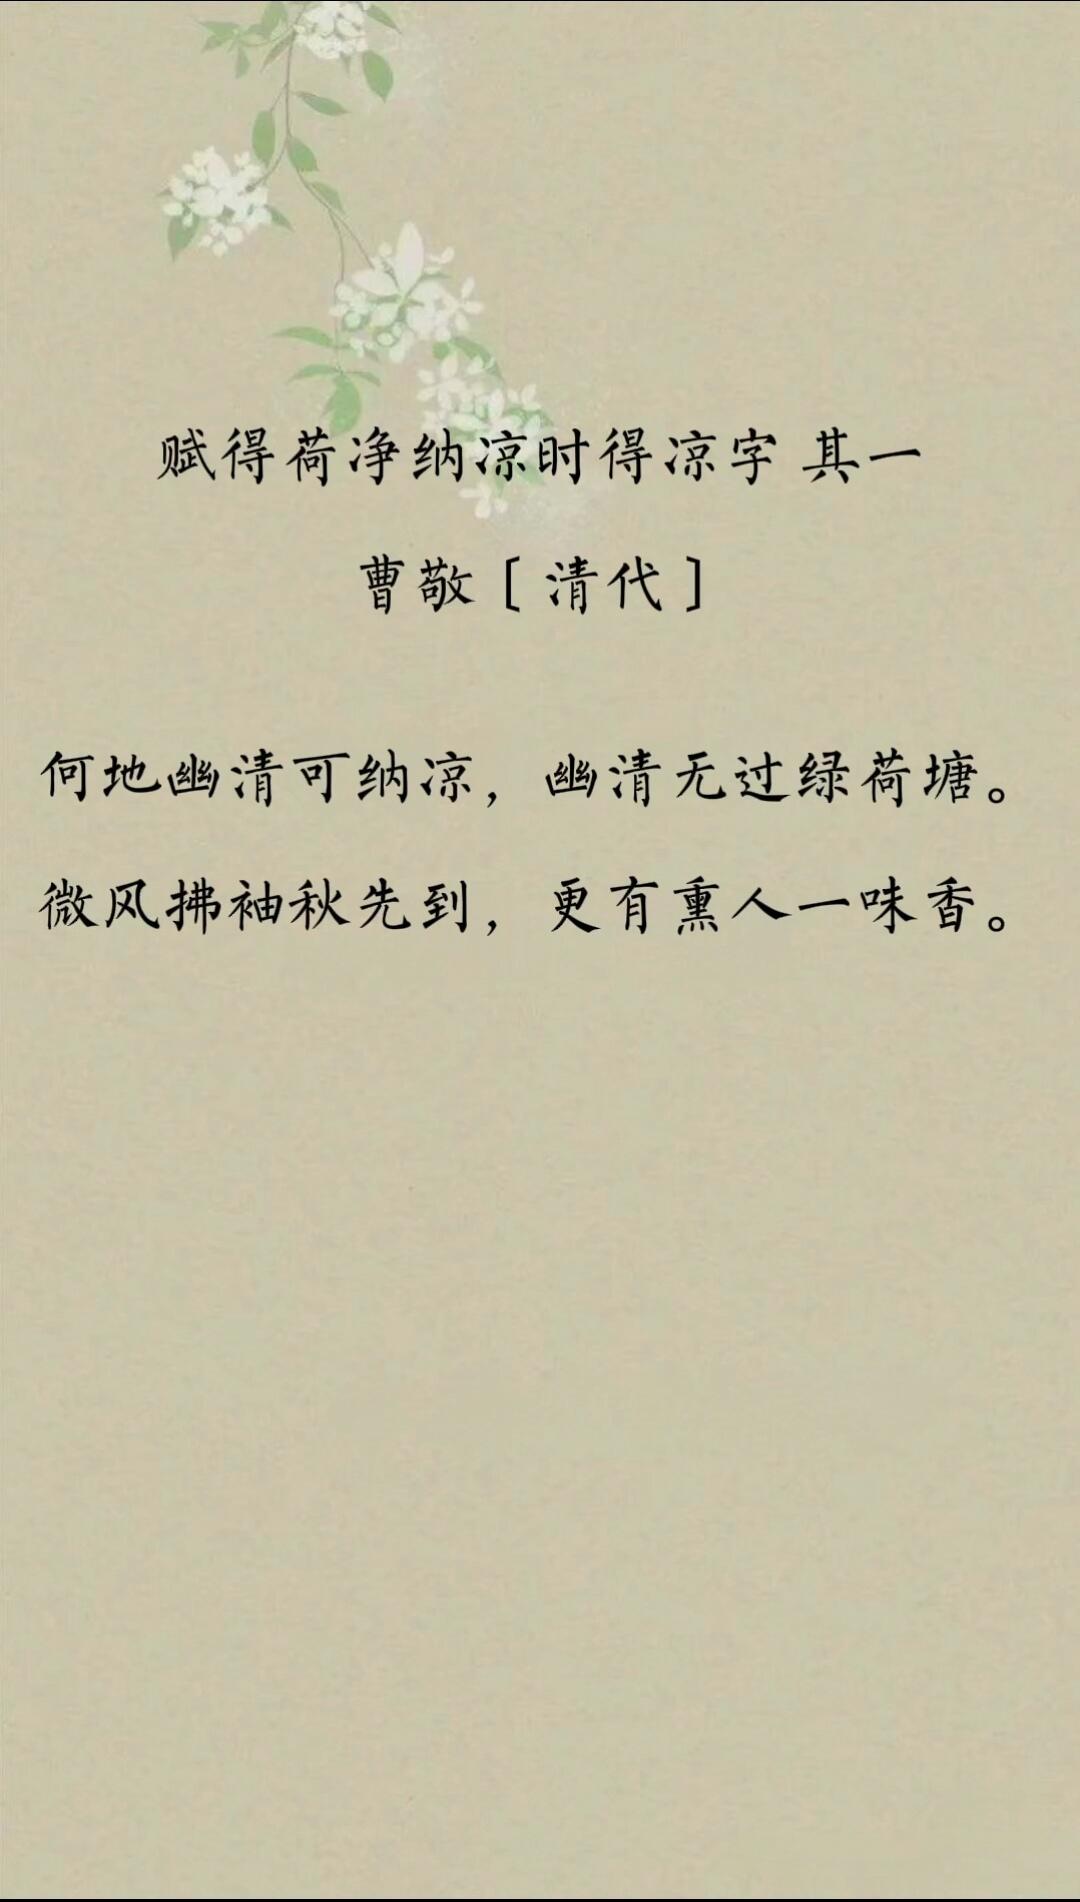 赋得荷净纳凉时得凉字 其一
曹敬［清代］
何地幽清可纳凉，幽清无过绿荷塘。
微风拂袖秋先到，更有熏人一味香。